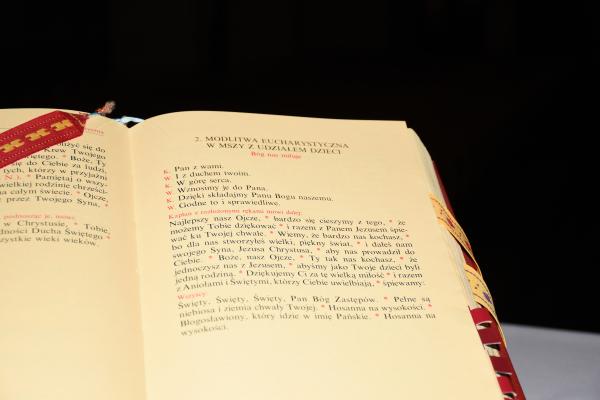 nżyć się do
Krew Twojego
ętego. * Boże, Ty
do Ciebie za ludzi,
tych, którzy w przyjaźni
N.). * Pamiętaj o wszy-
wielkiej rodzinie chrześci-
na całym świecie. * Ojcze,
przez Twojego Syna, *
podnosząc je, mówi:
w Chrystusie, * Tobie,
dności Ducha Świętego *
szystkie wieki wieków.
2. MODLITWA EUCHARYSTYCZNA
W MSZY Z UDZIAŁEM DZIECI
Bóg nas miłuje
K. Pan z wami.
W. I z duchem twoim.
K. W górę serca.
W. Wznosimy je do Pana.
K. Dzięki składajmy Panu Bogu naszemu.
W. Godne to i sprawiedliwe.
Kapłan z rozłożonymi rękami mówi dalej:
Najlepszy nasz Ojcze, * bardzo się cieszymy z tego, * że
możemy Tobie dziękować * i razem z Panem Jezusem śpie-
wać ku Twojej chwale. * Wiemy, że bardzo nas kochasz, *
bo dla nas stworzyłeś wielki, piękny świat, * i dałeś nam
swojego Syna, Jezusa Chrystusa, * aby nas prowadził do
Ciebie. * Boże, nasz Ojcze, * Ty tak nas kochasz, * że
jednoczysz nas z Jezusem, * abyśmy jako Twoje dzieci byli
jedną rodziną. * Dziękujemy Ci za tę wielką miłość * i razem
z Aniołami i Świętymi, którzy Ciebie uwielbiają, * śpiewamy:
Wszyscy:
Święty, Święty, Święty, Pan Bóg Zastępów. * Pełne są
niebiosa i ziemia chwały Twojej. * Hosanna na wysokości. *
Błogosławiony, który idzie w imię Pańskie. * Hosanna na
wysokości.